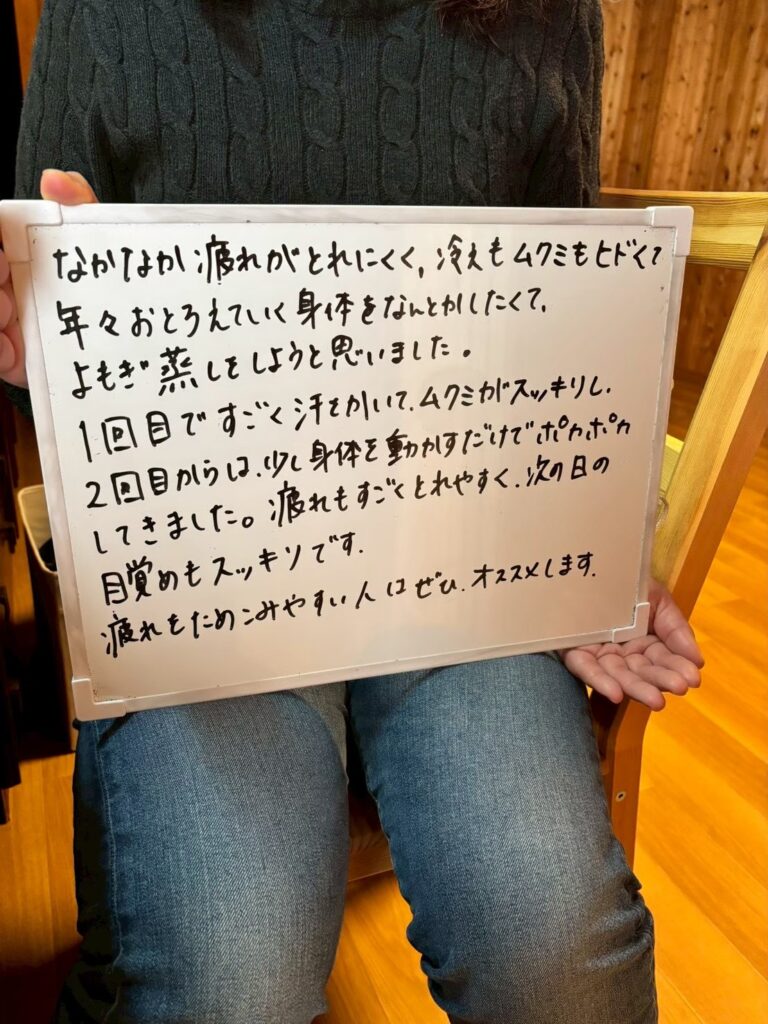 なかなか疲れがとれにくく,冷えもムクミもヒドくて
年々おとろえていく身体をなんとかしたくて,
よもぎ蒸しをしようと思いました。
1回目ですごく汗をかいて.ムクミがスッキリし.
2回目からは.少し身体を動かすだけでポカポカ
してきました。疲れもすごくとれやすく.次の日の
目覚めもスッキリです.
疲れをためこみやすい人はぜひ.オススメします.